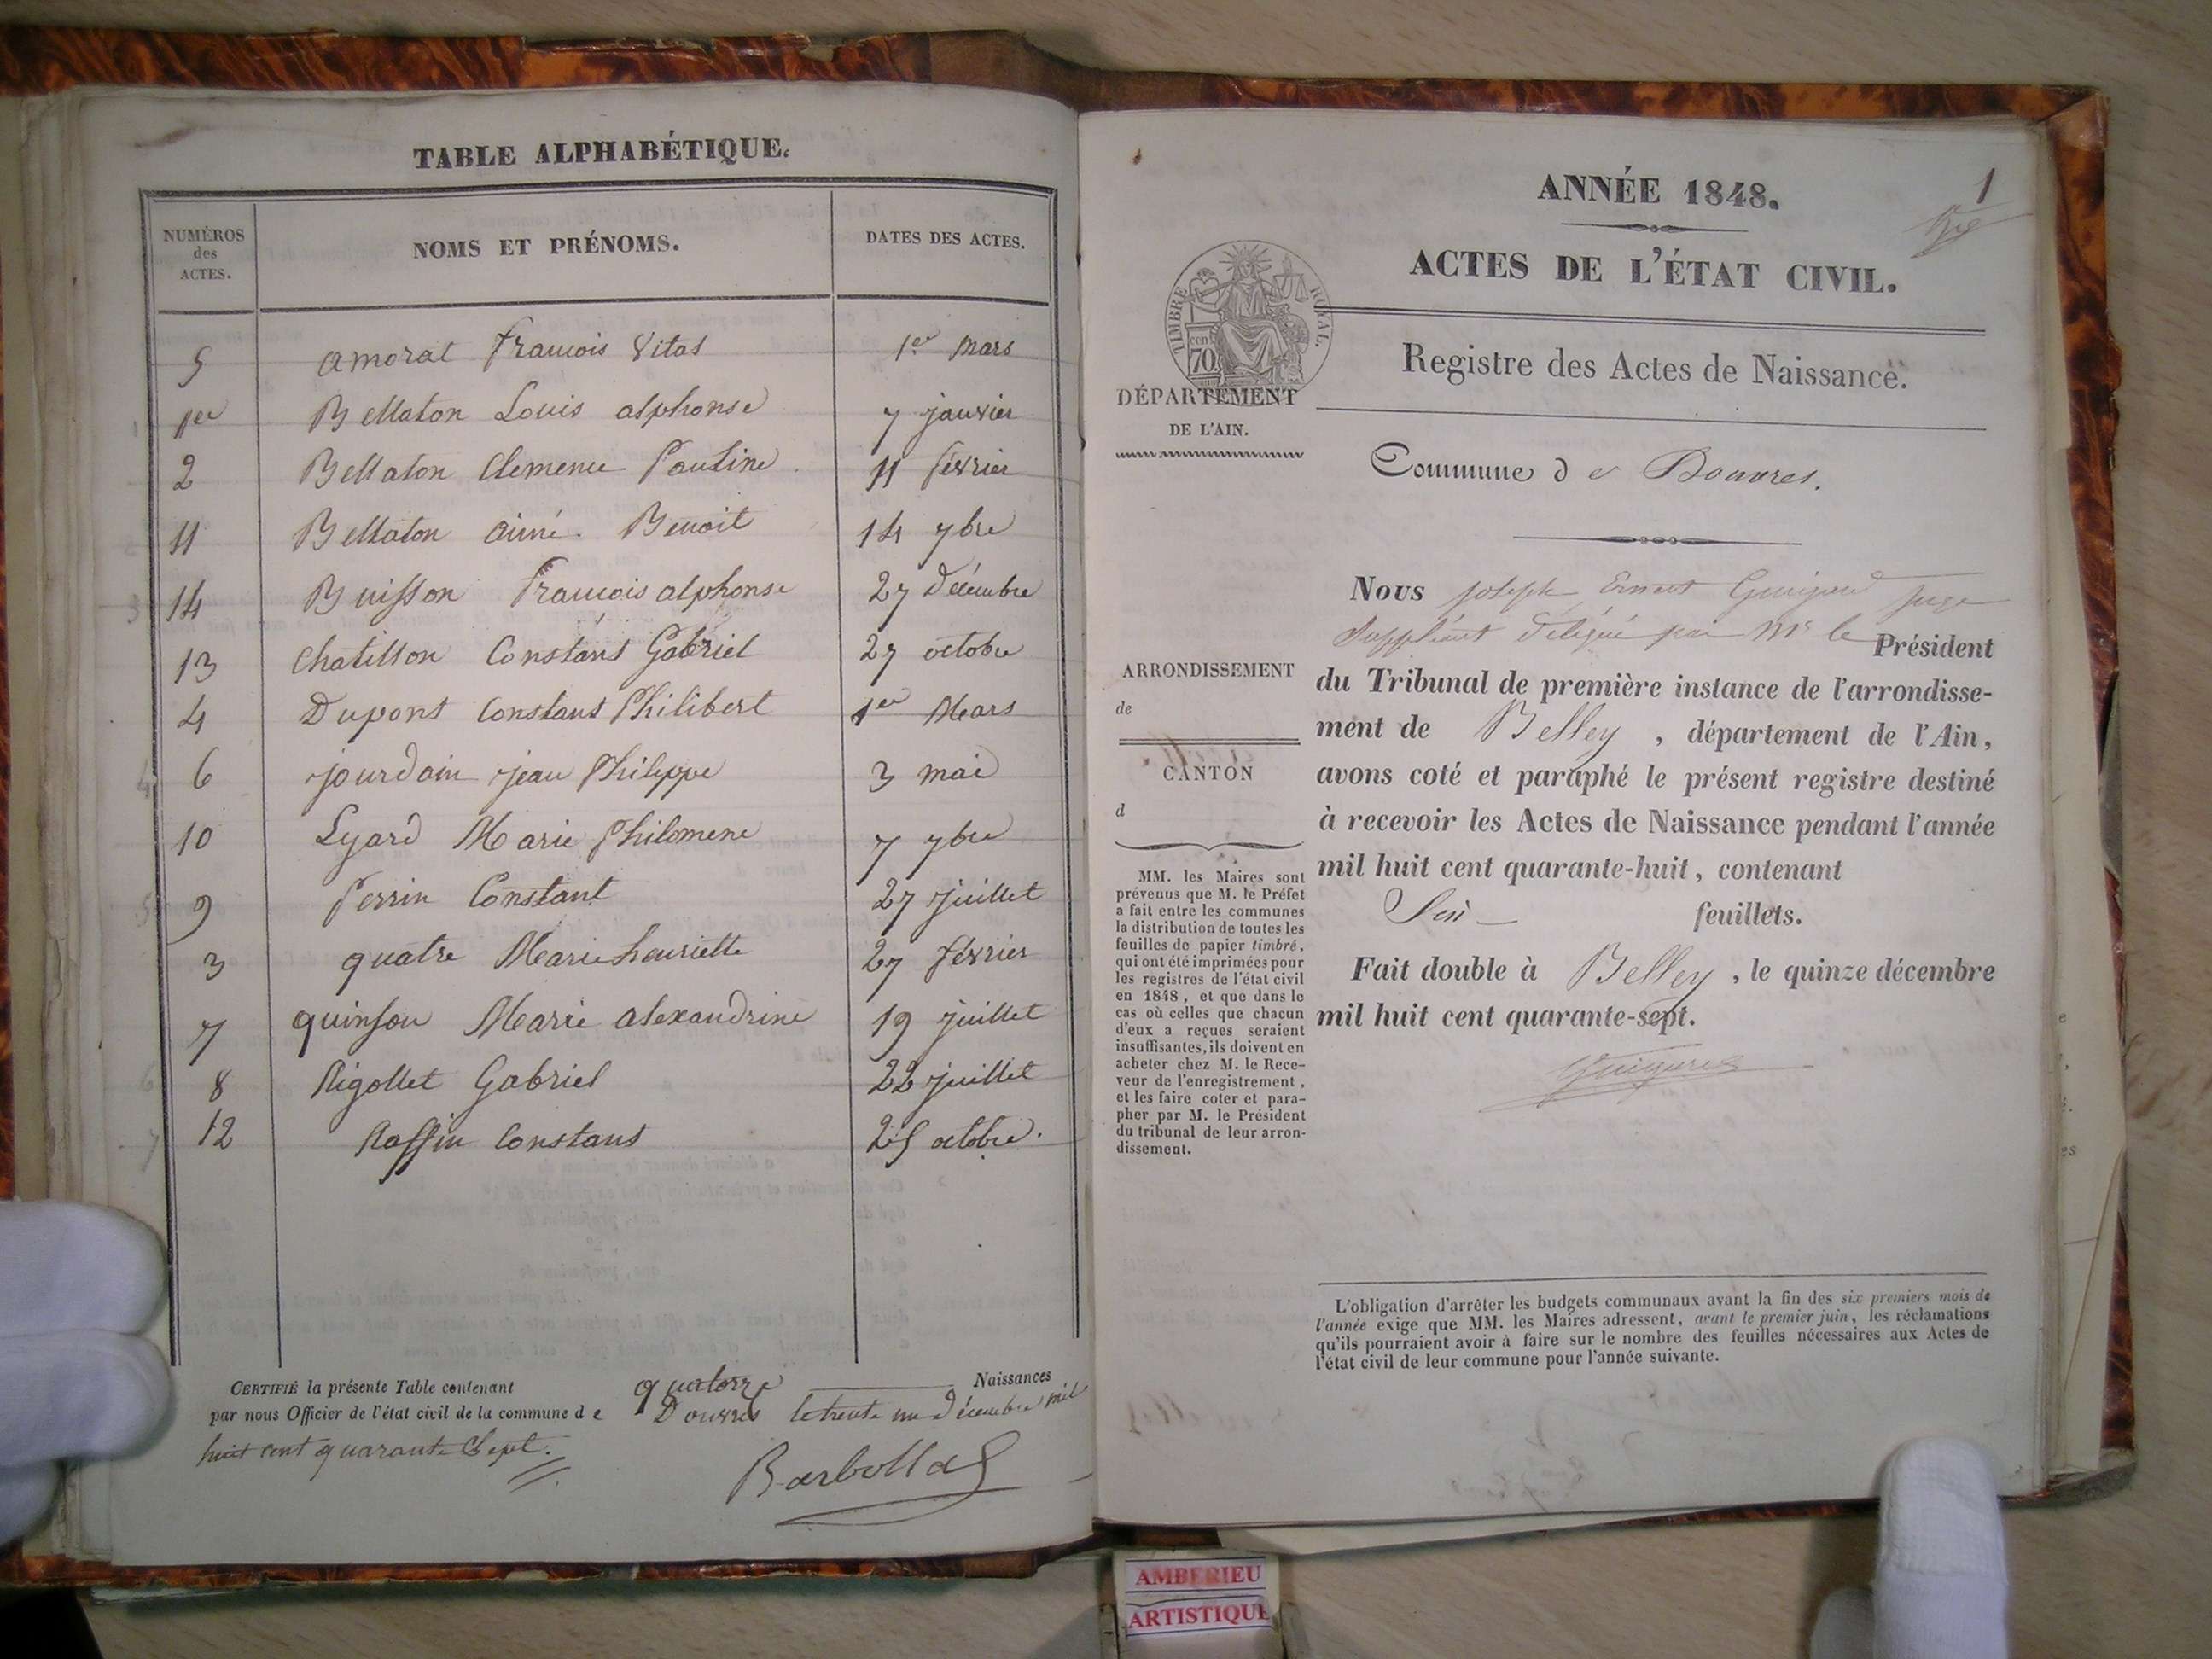 TABLE ALPHABÉTIQUE.
NUMÉROS des ACTES. NOMS ET PRÉNOMS. DATES DES ACTES.
5 amoral francois Vitas 1er mars
1er Bellaton Louis alphonse 7 janvier
2 Bellaton Clemence Pauline 11 février
11 Bellaton aimé. Benoit 14 7bre
14 Buisson francois alphonse 27 décembre
13 Chatillon Constans Gabriel 27 octobre
4 Dupont Constant Philibert 1er Mars
6 jourdain jean Philippe 3 mai
10 Lyard Marie Philomene 7 7bre
9 Perrin Constant 27 juillet
3 quatre Marie henriette 27 février
7 quinson Marie alexandrine 19 juillet
8 Rigollet Gabriel 22 juillet
12 Raffin Constans 25 octobre.
CERTIFIÉ la présente Table contenant quatorze Naissances
par nous Officier de l'état civil de la commune d e Douvres le trente un décembre mil
huit cent quarante Sept.
1
ANNÉE 1848.
ACTES DE L'ÉTAT CIVIL.
TIMBRE ROYAL.
cen 70
Registre des Actes de Naissance.
DÉPARTEMENT
DE L'AIN.
Commune d e Douvres.
Nous joseph Ernest Guigard juge
Suppléant délégué par Mr le Président
du Tribunal de première instance de l'arrondisse-
ment de Belley , département de l'Ain,
avons coté et paraphé le présent registre destiné
à recevoir les Actes de Naissance pendant l'année
mil huit cent quarante-huit, contenant
Six feuillets.
Fait double à Belley , le quinze décembre
mil huit cent quarante-sept.
ARRONDISSEMENT
de
CANTON
d
MM. les Maires sont
prévenus que M. le Préfet
a fait entre les communes
la distribution de toutes les
feuilles de papier timbré,
qui ont été imprimées pour
les registres de l'état civil
en 1848, et que dans le
cas où celles que chacun
d'eux a reçues seraient
insuffisantes, ils doivent en
acheter chez M. le Rece-
veur de l'enregistrement,
et les faire coter et para-
pher par M. le Président
du tribunal de leur arron-
dissement.
L'obligation d'arrêter les budgets communaux avant la fin des six premiers mois de
l'année exige que MM. les Maires adressent, avant le premier juin, les réclamations
qu'ils pourraient avoir à faire sur le nombre des feuilles nécessaires aux Actes de
l'état civil de leur commune pour l'année suivante.
AMBERIEU
ARTISTIQUE